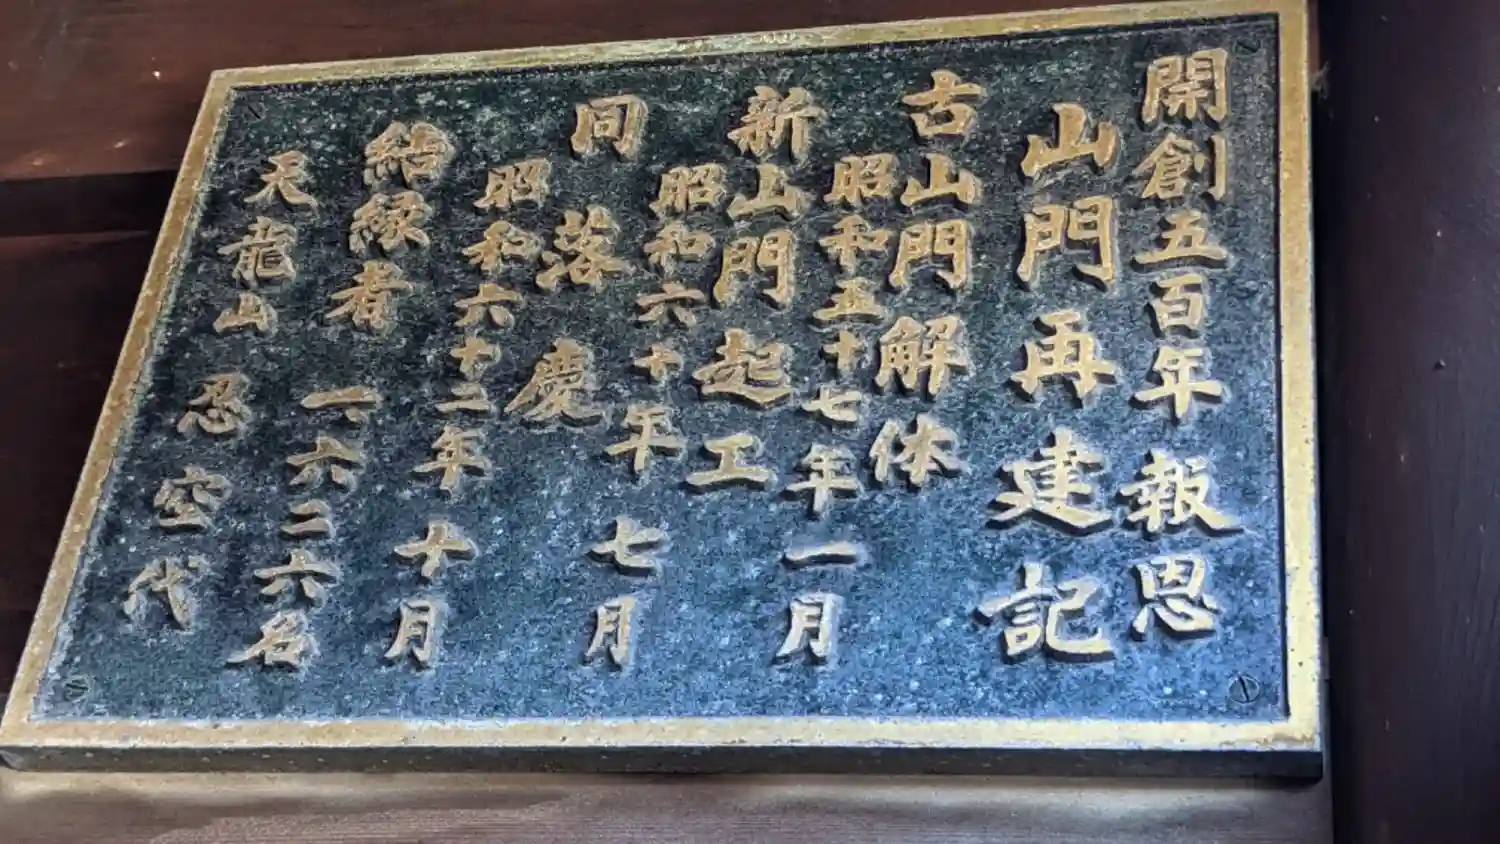 開創五百年報恩
山門再建記
古山門解体
昭和五十七年一月
新山門起工
昭和六十年七月
同落慶
昭和六十二年十月
結縁者
一、六二六名
天龍山忍空代